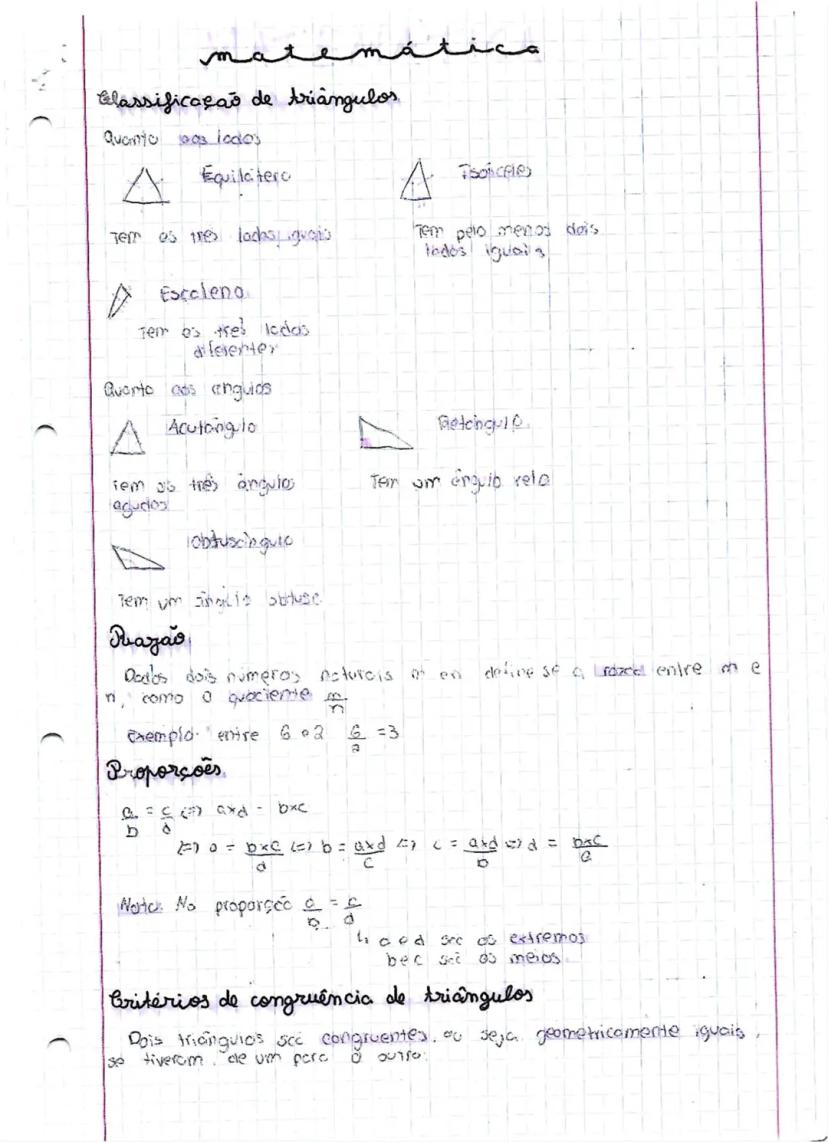 matemática
Classificação de triângulos
Quanto aos lados
Equilátero
Isósceles
Tem os três lados iguais
Tem pelo menos dois
lados iguais
Escaleno
Tem os três lados
diferentes
Quanto aos ângulos
Acutângulo
Retângulo
Tem os três ângulos
agudos
Tem um ângulo reto
Obtusângulo
Tem um ângulo obtuso
Razão
Dados dois números naturais m e n define se a razão entre m e
n, como o quociente m/n
Exemplo: entre 6 e 2 6/2 = 3
Proporções
a/b = c/d (=) axd = bxc
(=) a = bxc/d (=) b = axd/c (=) c = axd/b (=) d = bxc/a
Nota: Na proporção a/b = c/d
↳ a e d são os extremos
b e c são os meios
Critérios de congruência de triângulos
Dois triângulos são congruentes, ou seja, geometricamente iguais,
se tiverem, de um para o outro: